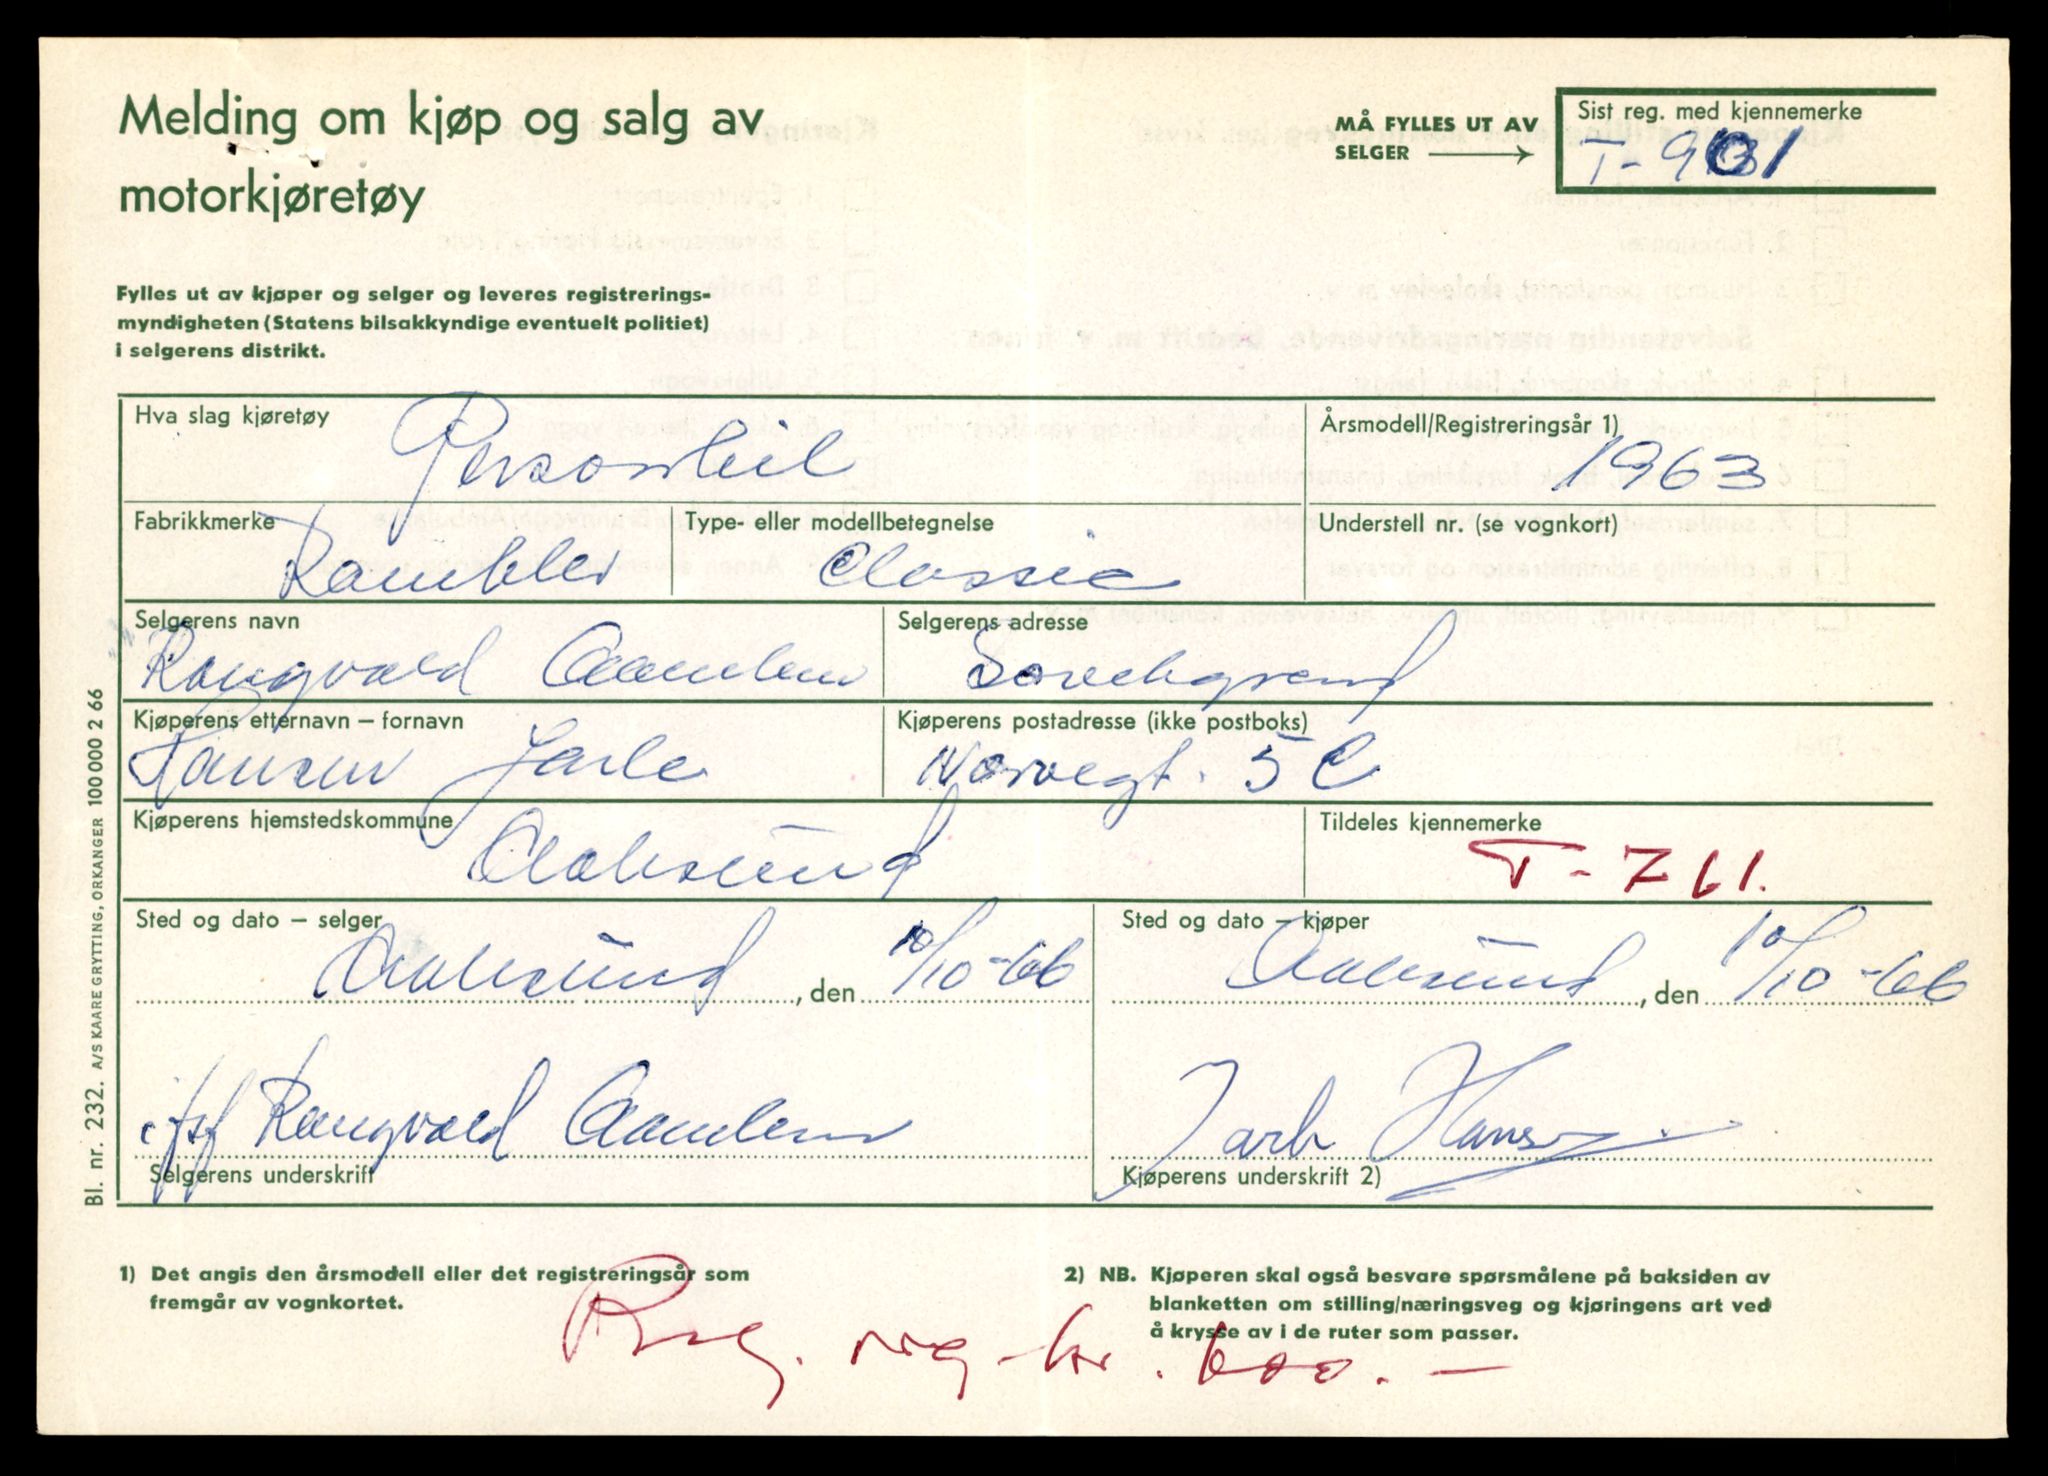 Melding om kjøp og salg av
motorkjøretøy
MÅ FYLLES UT AV
SELGER
Sist reg. med kjennemerke
Fylles ut av kjøper og selger og leveres registrerings-
myndigheten (Statens bilsakkyndige eventuelt politiet)
i selgerens distrikt.
Hva slag kjøretøy
Personbil
Årsmodell/Registreringsår 1)
1963
Fabrikkmerke
Rambler
Type- eller modellbetegnelse
Classic
Understell nr. (se vognkort)
Selgerens navn
Rangvald Aamlem
Selgerens adresse
Kjøperens etternavn – fornavn
Hansen Jarle
Kjøperens postadresse (ikke postboks)
Nørvegt. 5 C
Kjøperens hjemstedskommune
Aalesund
Tildeles kjennemerke
T - 761.
Sted og dato – selger
Aalesund, den 10/10-66
Sted og dato – kjøper
Aalesund, den 10/10-66
Rangvald Aamlem
Selgerens underskrift
Jarle Hansen
Kjøperens underskrift 2)
Bl. nr. 232. A/S KAARE GRYTTING, ORKANGER 100 000 2 66
1) Det angis den årsmodell eller det registreringsår som
fremgår av vognkortet.
2) NB. Kjøperen skal også besvare spørsmålene på baksiden av
blanketten om stilling/næringsveg og kjøringens art ved
å krysse av i de ruter som passer.
Reg. avg. kr. 600.-